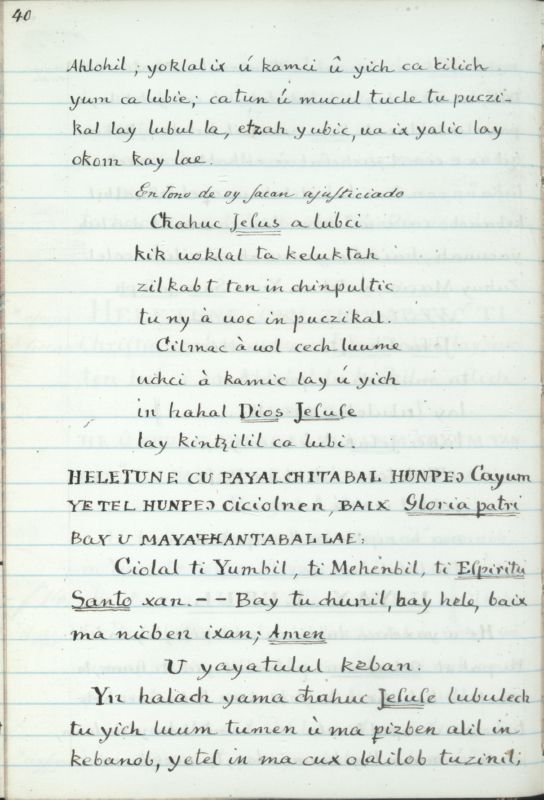 40
Ahlohil; yoklal ix ú kamci û yich ca kilich
yum ca lubie; catun ú mucul tucle tu puczi-
kal lay lubul la, etzah yubic, ua ix yalic lay
okom kay lae.
En tono de oy sacan ajusticiado
Cħahuc Jesus a lubci
kik uoklal ta keluktah
zilkabt ten in chinpultic
tu ny à uoc in puczikal.
Cilmac à uol cech luume
uchci à kamic lay ú yich
in hahal Dios Jesuse
lay kintzilil ca lubi.
HELETUNE CU PAYALCHITABAL HUNPEƆ Cayum
YETEL HUNPEƆ ciciolnen, BAIX Gloria patri
BAY U MAYATHANTABAL LAE:
Ciolal ti Yumbil, ti Mehenbil, ti Espiritu
Santo xan. - - Bay tu chunil, bay hele, baix
ma nicben ixan; Amen
U yayatulul keban.
Yn halach yama cħahuc Jesuse lubulech
tu yich luum tumen ù ma pizben alil in
kebanob, yetel in ma cux olalilob tuzinil;